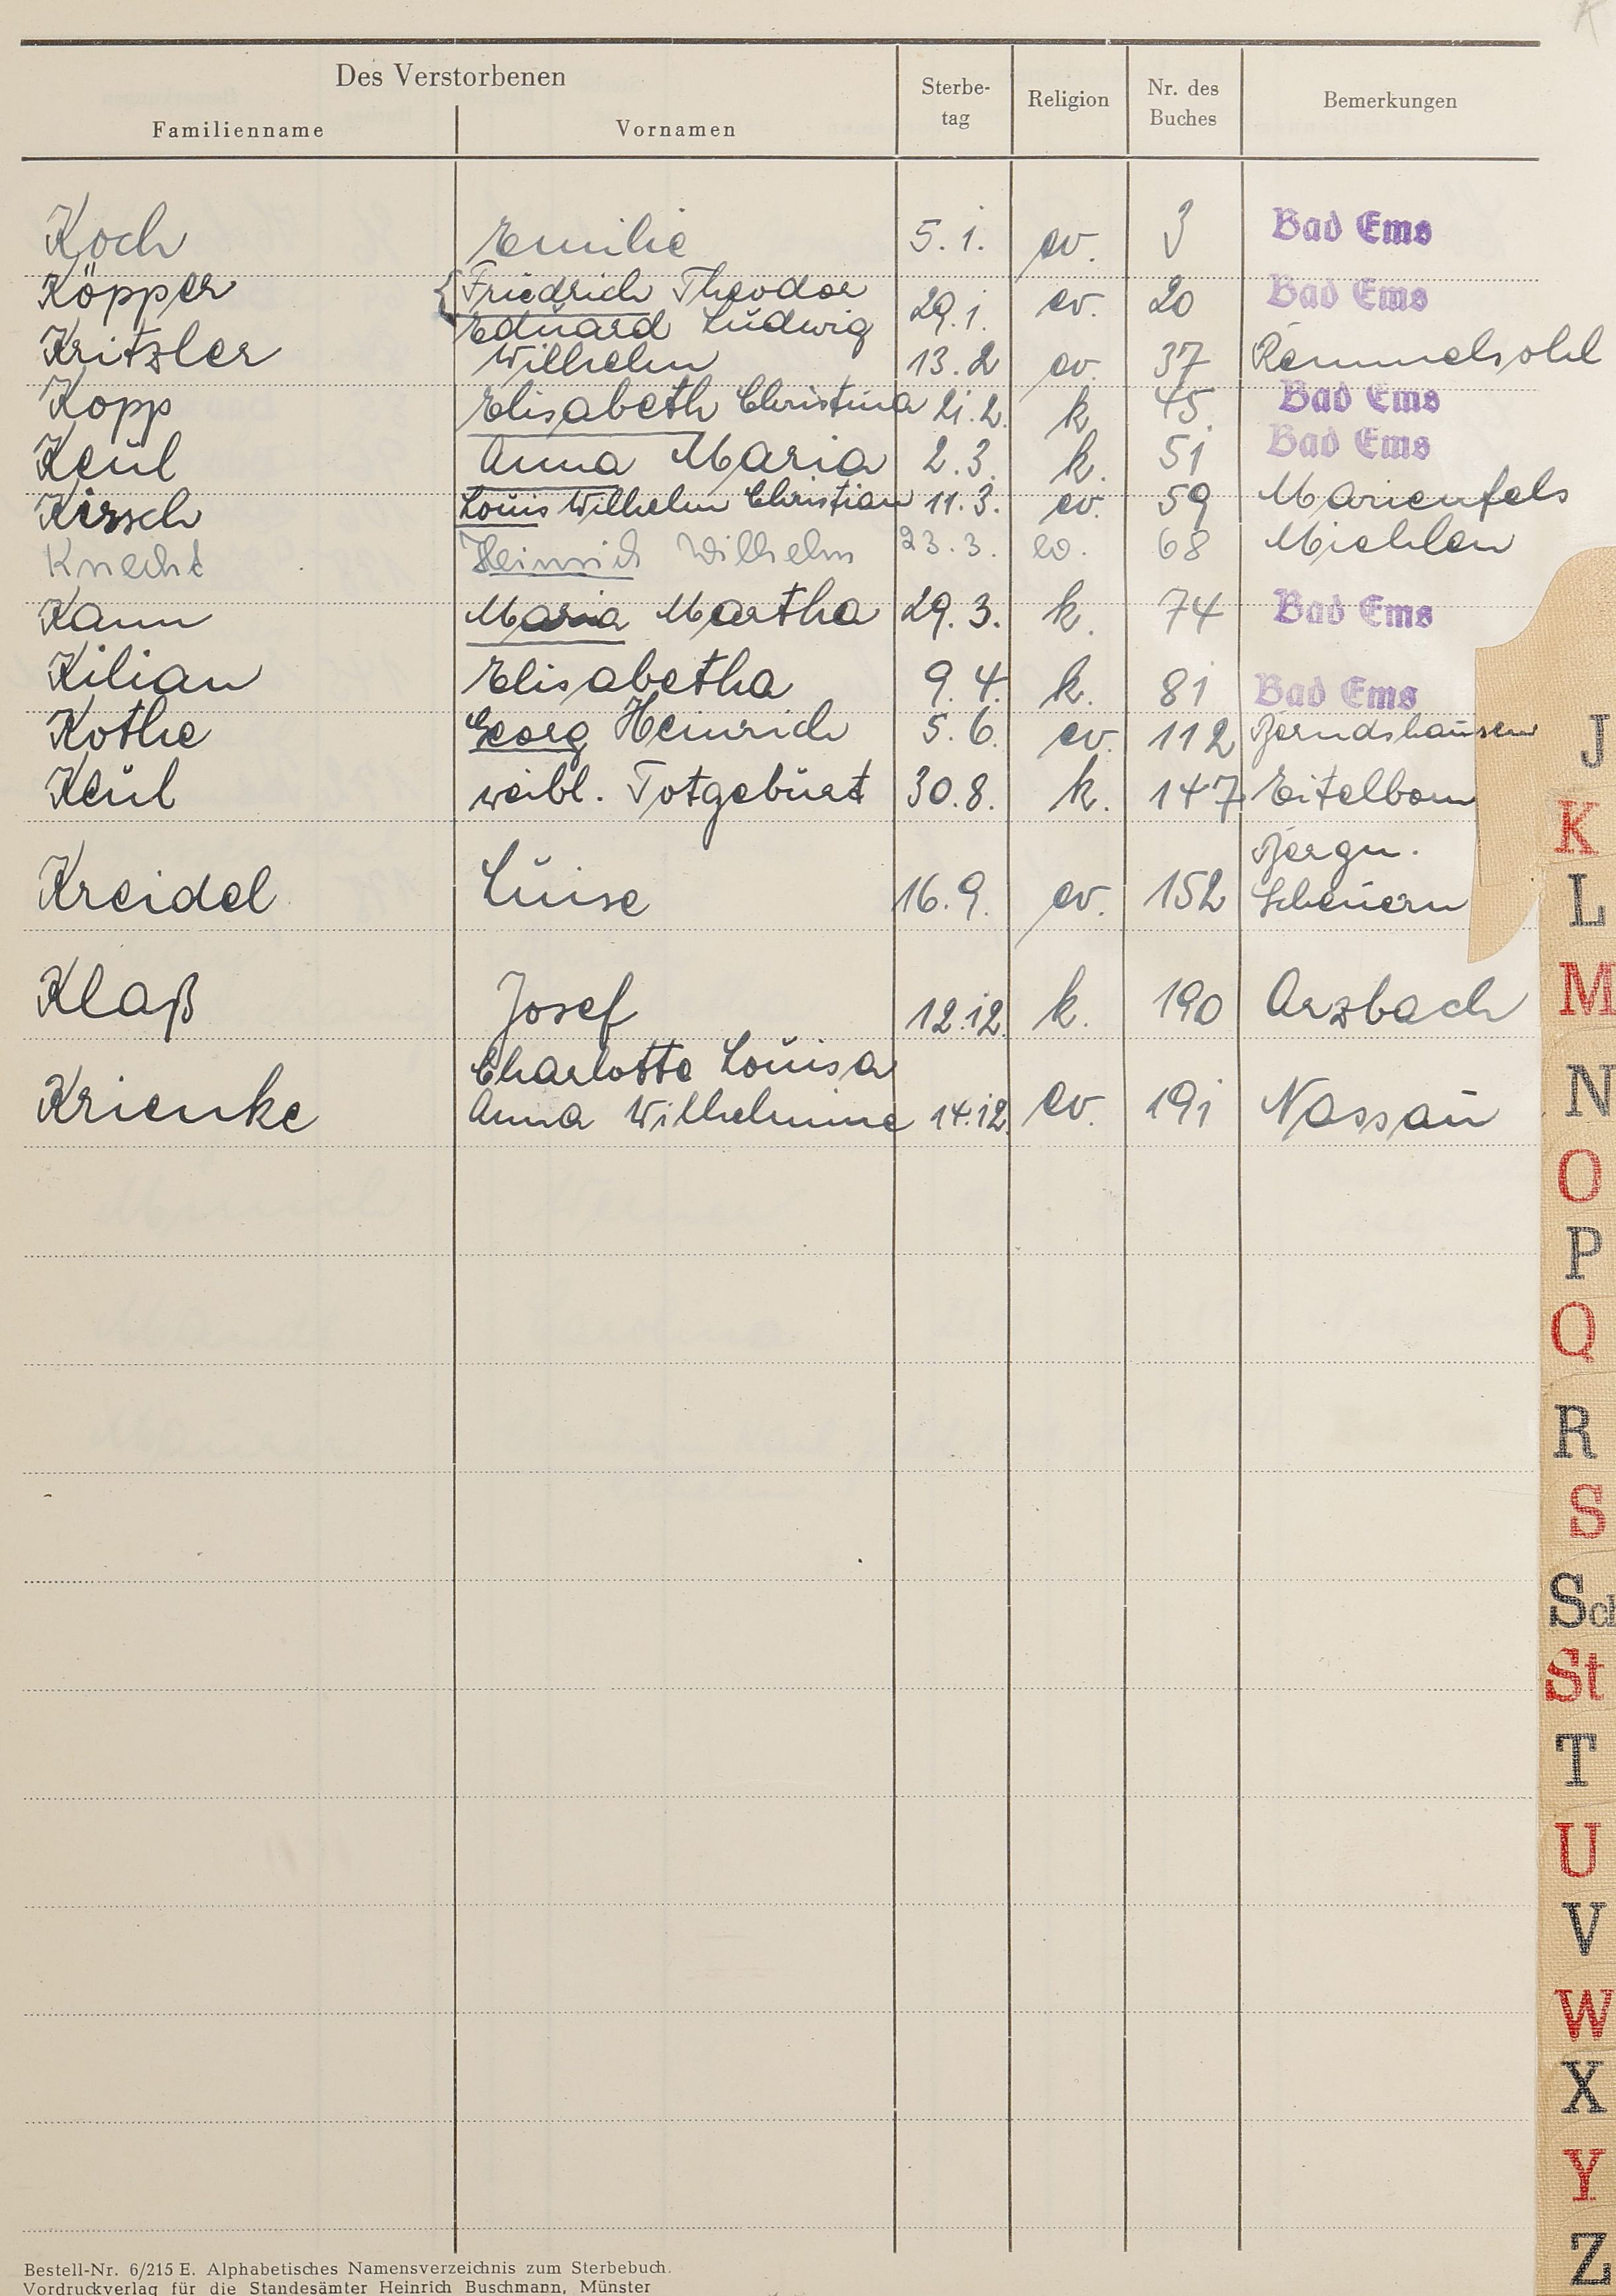 K
Des Verstorbenen
Familienname Vornamen Sterbe-tag Religion Nr. des Buches Bemerkungen
Koch Emilie 5. 1. ev. 3 Bad Ems
Köpper { Friedrich Theodor
Eduard Ludwig 29. 1. ev. 20 Bad Ems
Kritzler Wilhelm 13. 2 ev. 37
Kopp Elisabeth Christina 21. 2. k 45 Bad Ems
Keul Anna Maria 2. 3. k. 51 Bad Ems
Kirsch Louis Wilhelm Christian 11. 3. ev. 59 Marienfels
Knecht Heinrich Wilhelm 23. 3. ev. 68 Miehlen
Kann Maria Martha 29. 3. k. 74 Bad Ems
Kilian Elisabetha 9. 4. k. 81 Bad Ems
Kothe Georg Heinrich 5. 6. ev. 112 Berndshausen
Keul weibl. Totgeburt 30. 8. k. 147 Eitelborn
Kreidel Luise 16. 9. ev. 152 Bergn. Scheuern
Klaß Josef 12. 12. k. 190 Arzbach
Charlotte Louisa
Krienke Anna Wilhelmine 14. 12. ev. 191 Nassau
J
K
L
M
N
O
P
Q
R
S
Sch
St
T
U
V
W
X
Y
Z
Bestell-Nr. 6/215 E. Alphabetisches Namensverzeichnis zum Sterbebuch.
Vordruckverlag für die Standesämter Heinrich Buschmann, Münster